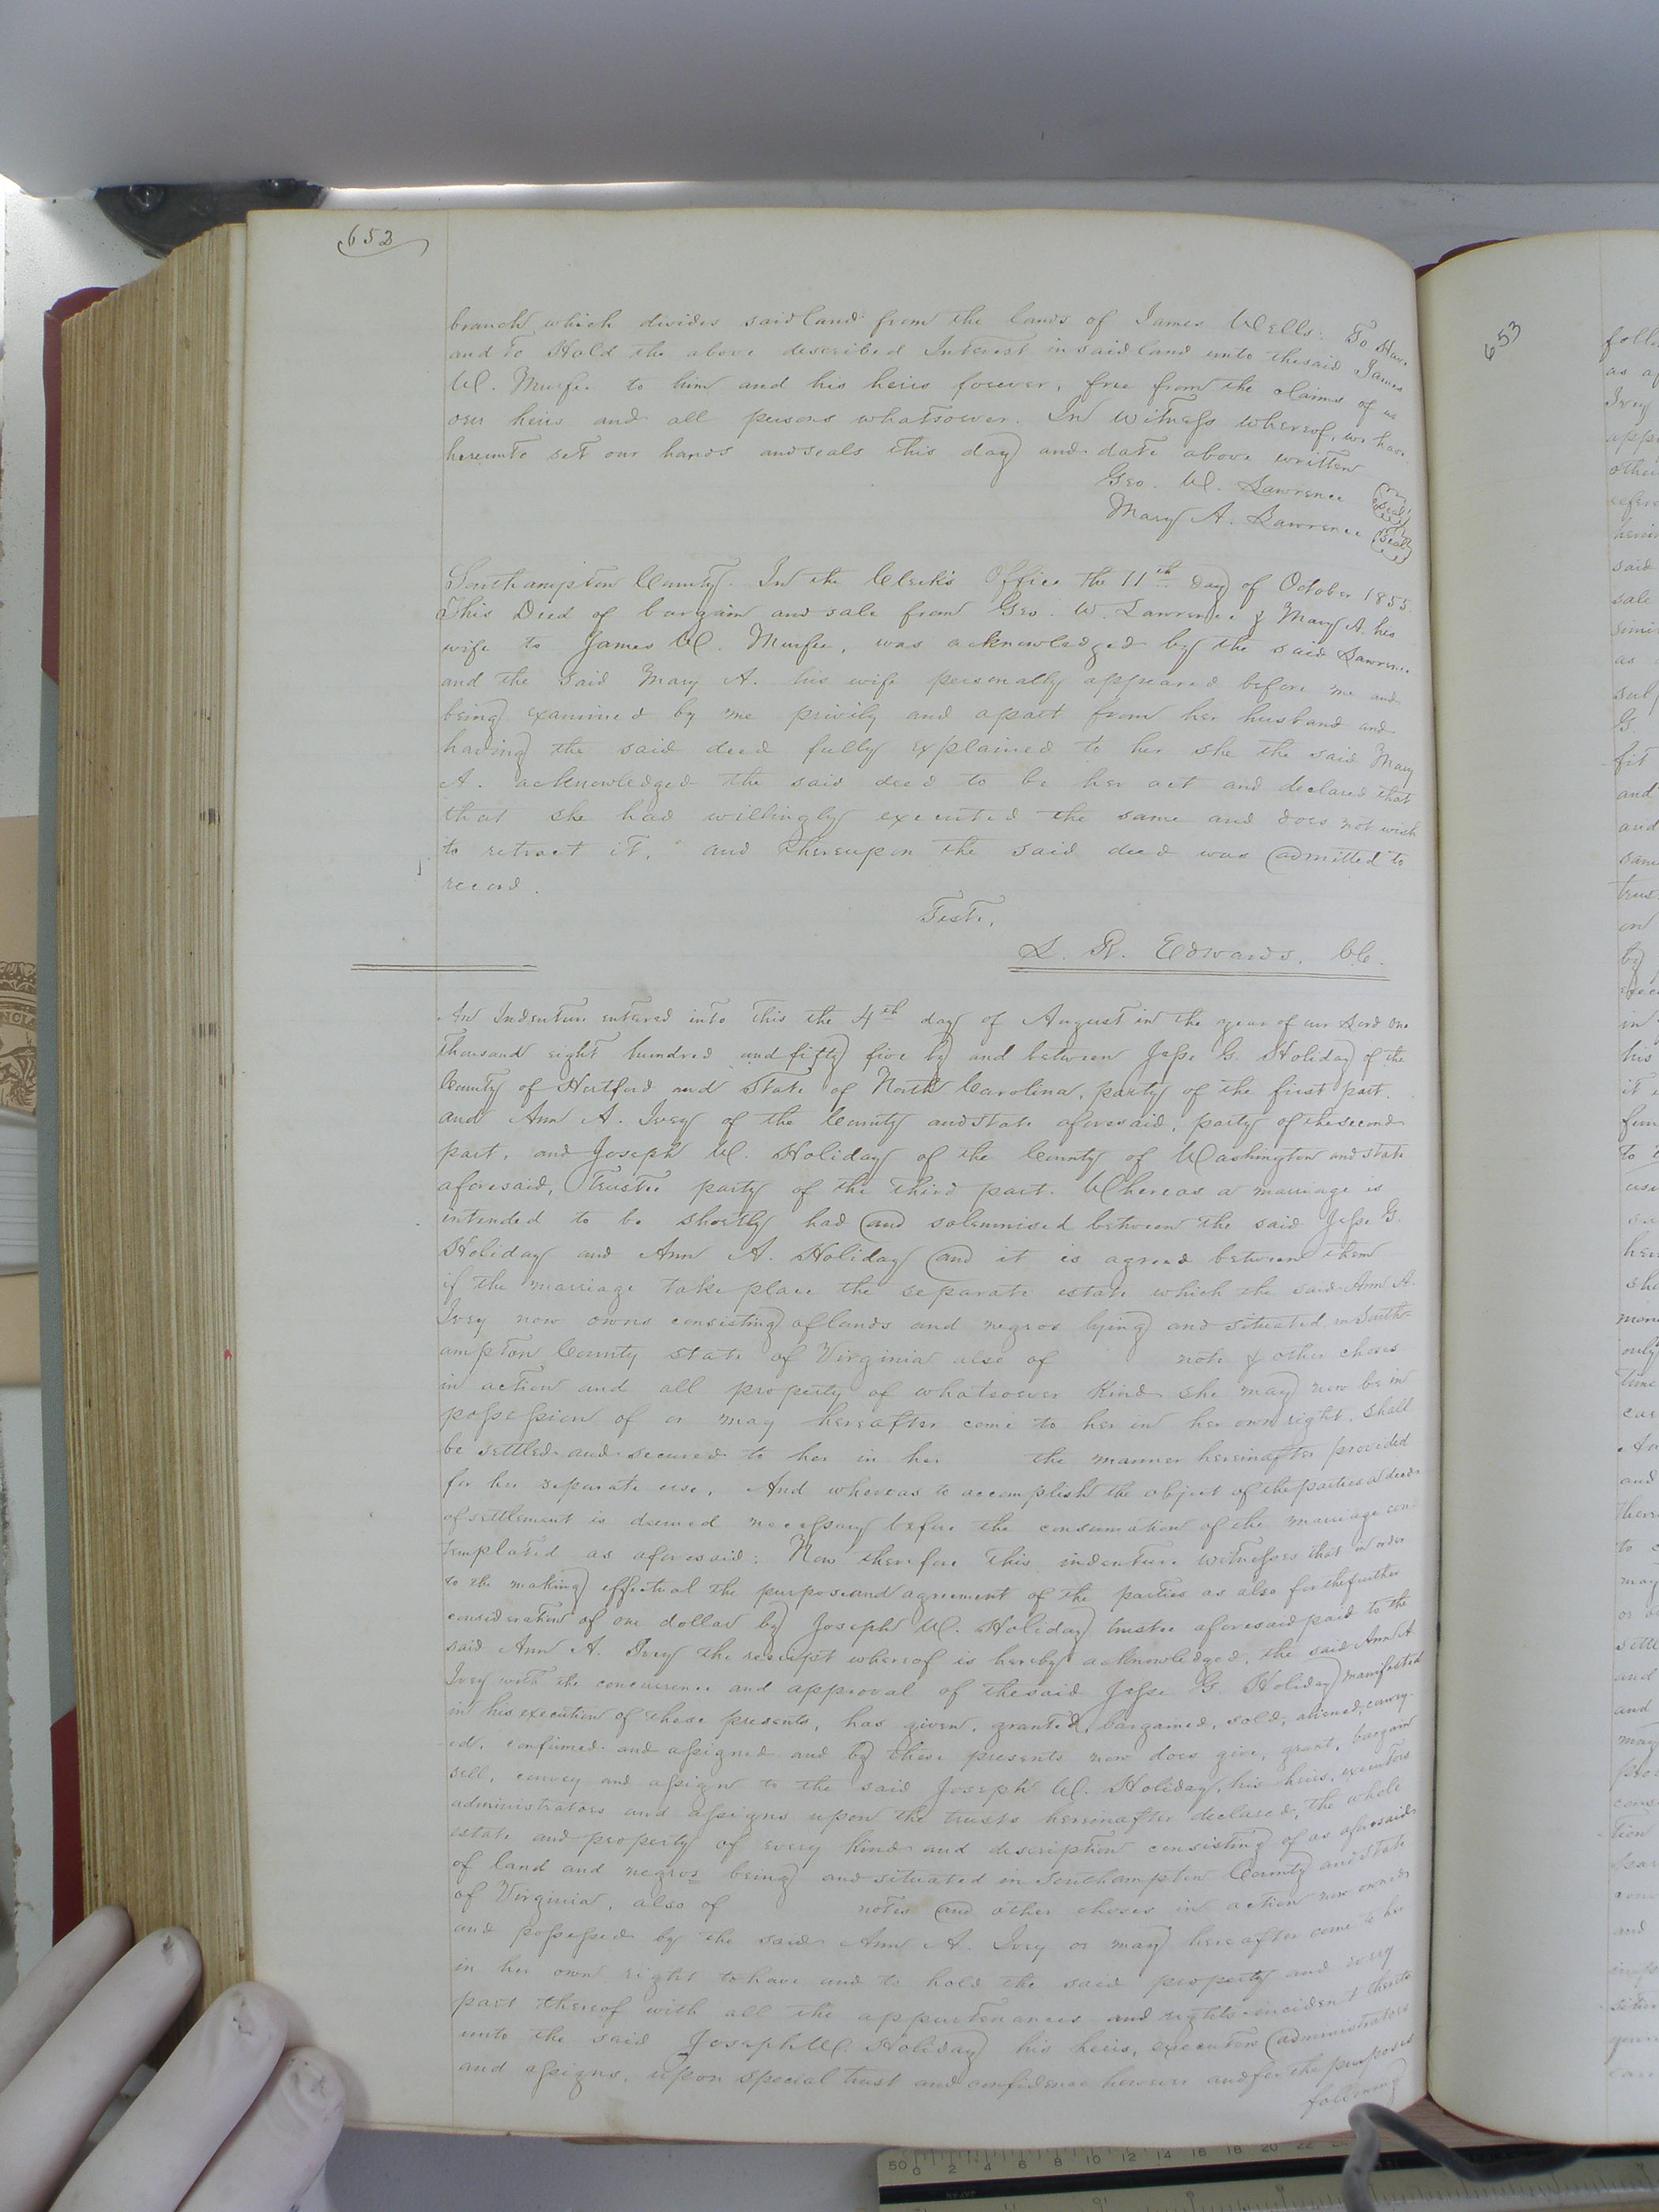 652
branch which divides said land from the lands of James Wells: To Have
and To Hold the above described Interest in said land unto the said James
W. Murfee to him and his heirs forever, free from the claims of us
our heirs and all persons whatsoever. In Witness whereof, we have
hereunto set our hands and seals this day and date above written
Geo. W. Lawrence Seal
Mary A. Lawrence Seal
Southampton County. In the Clerk's Office the 11th day of October 1855.
This Deed of bargain and sale from Geo. W. Lawrence & Mary A. his
wife to James W. Murfee, was acknowledged by the said Lawrence
and the said Mary A. his wife personally appeared before me and
being examined by me privily and apart from her husband and
having the said deed fully explained to her she the said Mary
A. acknowledged the said deed to be her act and declared that
that she had willingly executed the same and does not wish
to retract it, and thereupon the said deed was admitted to
record.
Teste,
L. R. Edwards. Cle.
An Indenture entered into this the 4th day of August in the year of our Lord One
Thousand eight hundred and fifty five by and between Jesse G. Holiday of the
County of Hertford and State of North Carolina, party of the first part.
and Ann A. Ivey of the County and State aforesaid, party of the second
part, and Joseph W. Holiday of the County of Washington and State
aforesaid, Trustee party of the third part. Whereas a marriage is
intended to be shortly had and solemnised between the said Jesse G.
Holiday and Ann A. Holiday and it is agreed between them
if the marriage take place the separate estate which the said Ann A.
Ivey now owns consisting of lands and negros lying and situated in South-
ampton County state of Virginia also of note & other choses
in action and all property of whatsoever kind she may now be in
possession of or may hereafter come to her in her own right, shall
be settled and secured to her in her the manner hereinafter provided
for her separate use, And whereas to accomplish the object of the parties a deed
of settlement is deemed necessary before the consumation of the marriage con-
templated as aforesaid: Now therefore this indenture witnesses that in order
to the making effectual the purpose and agreement of the parties as also for the further
consideration of one dollar by Joseph W. Holiday trustee aforesaid paid to the
said Ann A. Ivey the receipt whereof is hereby acknowledged, the said Ann A
Ivey with the concurrence and approval of the said Jesse G. Holiday manifested
in his execution of these presents, has given, granted, bargained, sold, aliened, convey-
ed, confirmed and assigned and by these presents now does give, grant, bargain
sell, convey and assign to the said Joseph W. Holiday, his heirs, executors
administrators and assigns upon the trusts hereinafter declared, the whole
estate and property of every kind and description consisting of as aforesaid
of land and negros being and situated in Southampton County and State
of Virginia, also of notes and other choses in action now owned
and possessed by the said Ann A. Ivey or may hereafter come to her
in her own right to have and to hold the said property and every
part thereof with all the appurtenances and rights incident thereto
unto the said Joseph W. Holiday his heirs, executors administrators
and assigns, upon special trust and confidence however and for the purposes
following
653